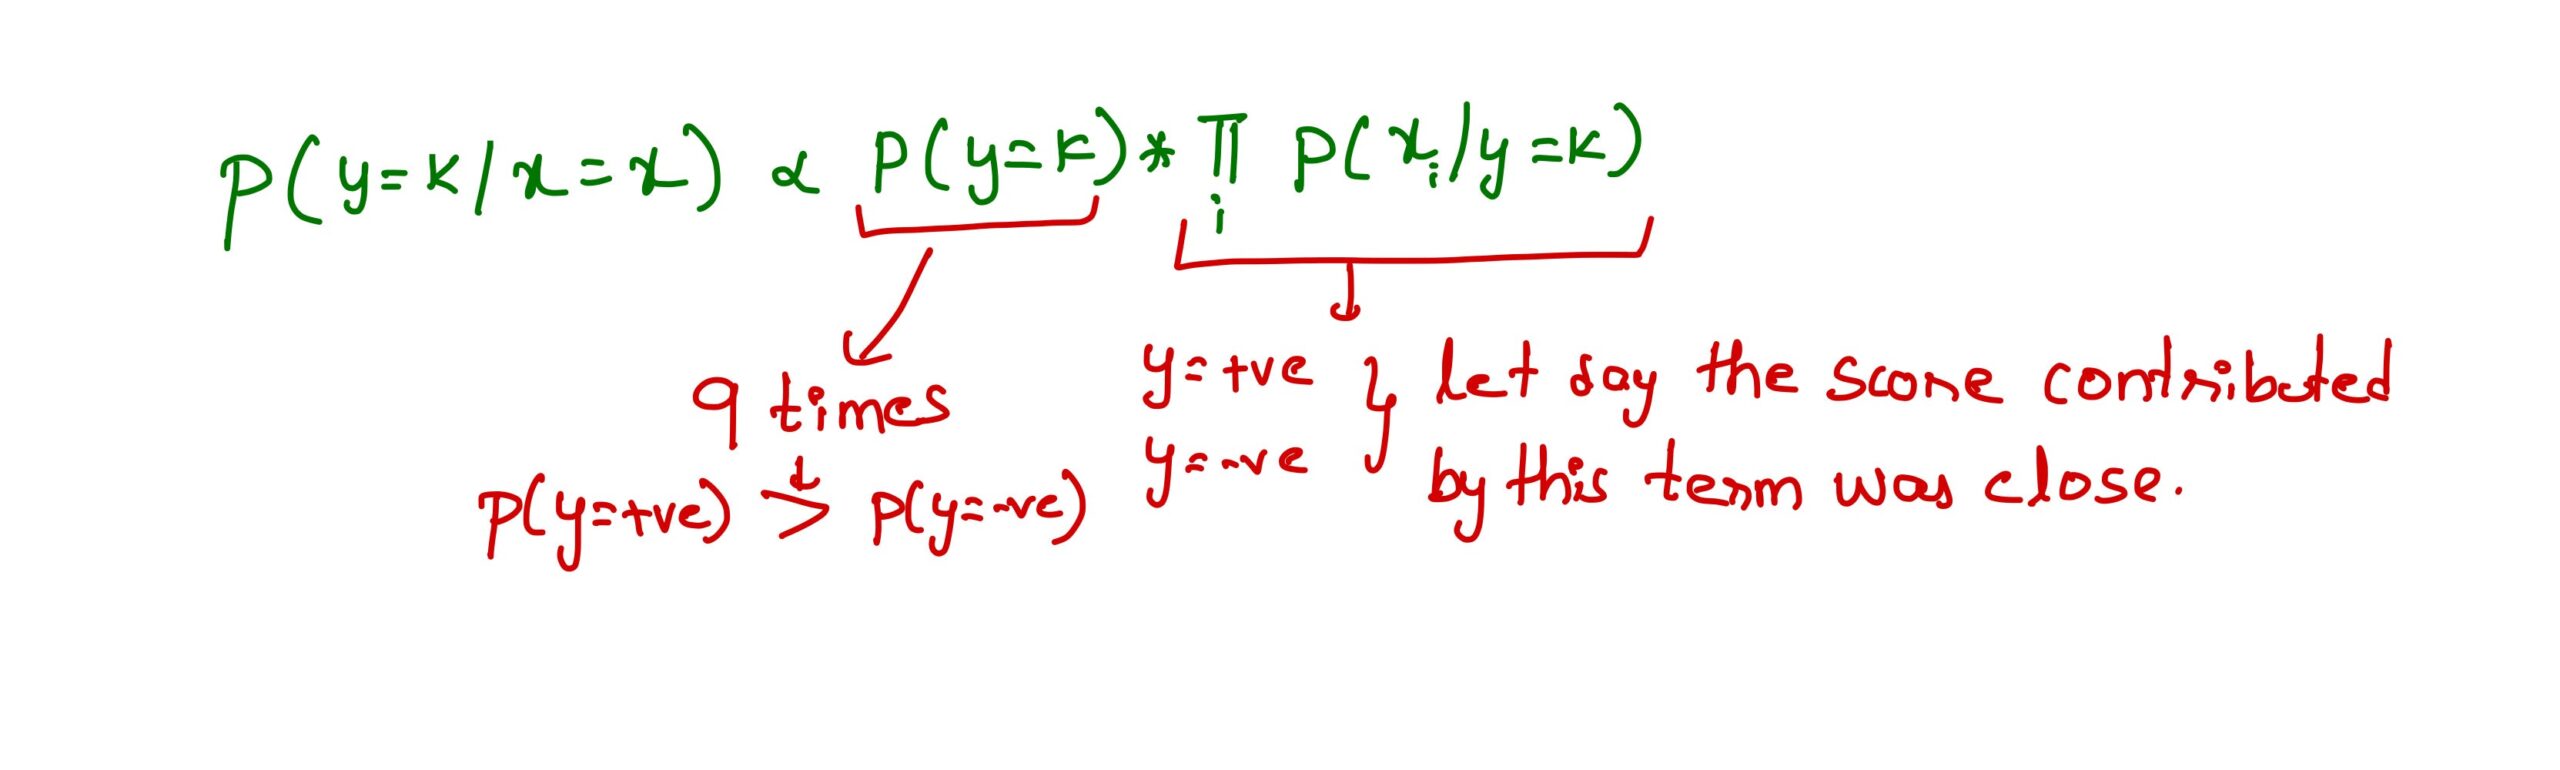 P(y=k/x=x) ∝ P(y=k) * ∏ P(xᵢ/y=k)
i
9 times
P(y=+ve) > P(y=-ve)
y=+ve } let say the score contributed
y=-ve by this term was close.